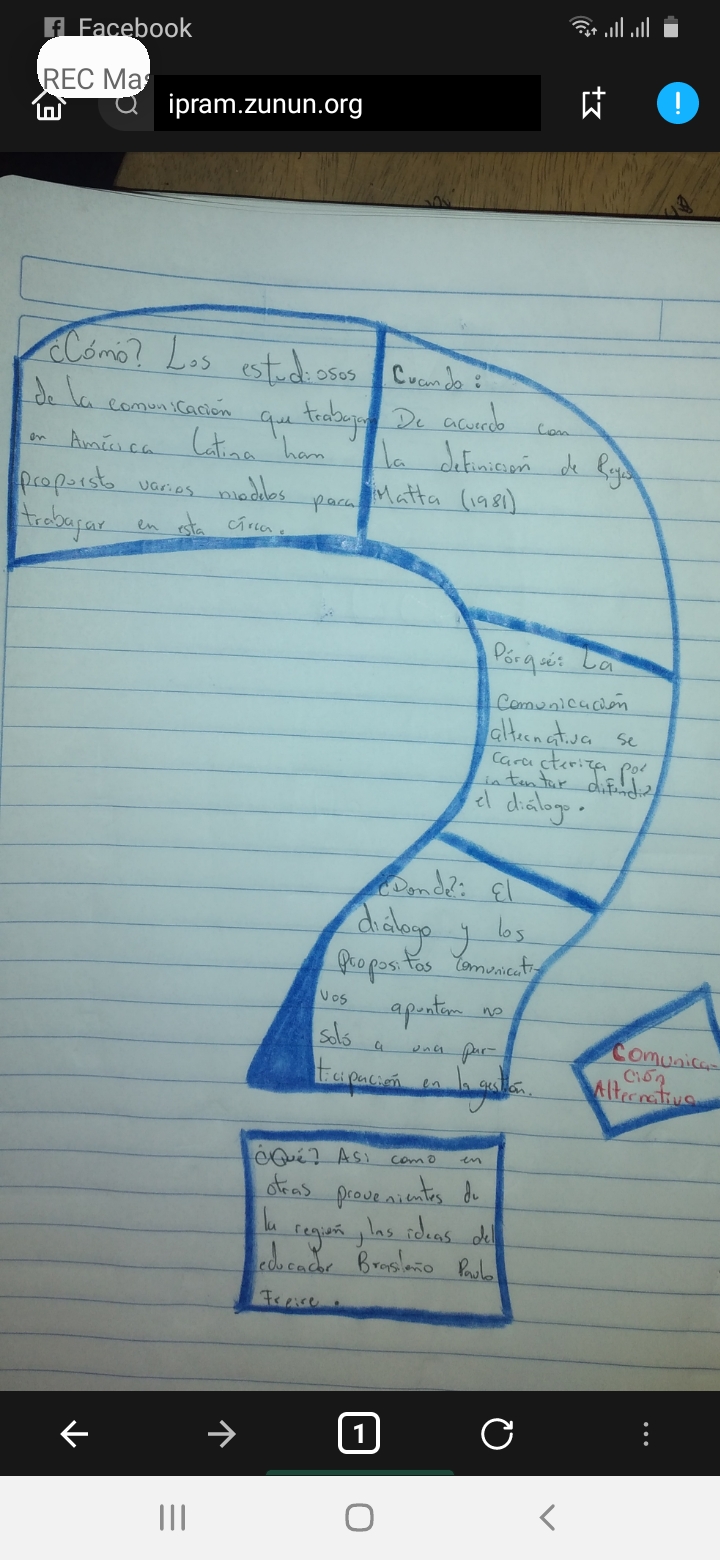 Facebook
REC Mas
ipram.zunun.org
¿Cómo? Los estudiosos
de la comunicación que trabajan
en América Latina han
propuesto varios modelos para
trabajar en esta círca.
Cuando:
De acuerdo con
la definición de Reyes
Matta (1981)
Pórqué: La
Comunicación
alternativa se
caracteriza por
intentar difundir
el diálogo.
¿Donde?: El
diálogo y los
Propositos comunicati-
vos apuntan no
soló a una par-
ticipación en la gestión.
Comunica-
ción
Alternativa
¿Qué? Asi como en
otras provenientes de
la región, las ideas del
educador Brasileño Paulo
Freire.
1